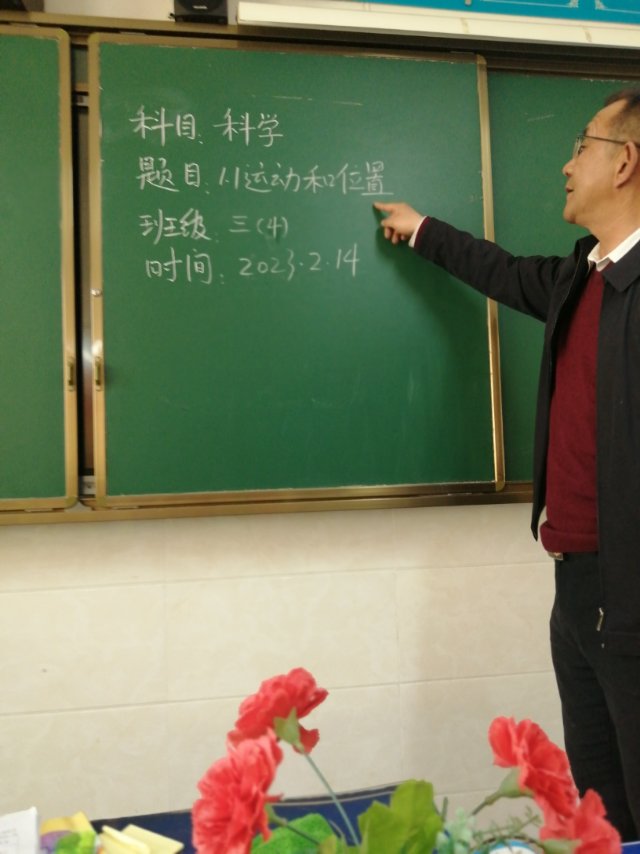 科目: 科学
题目: 1.1运动和位置
班级: 三(4)
时间: 2023.2.14